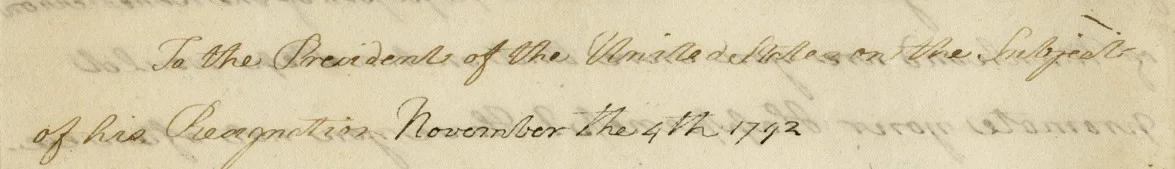 To the President of the United States on the Subject
of his Resignation November the 4th 1792